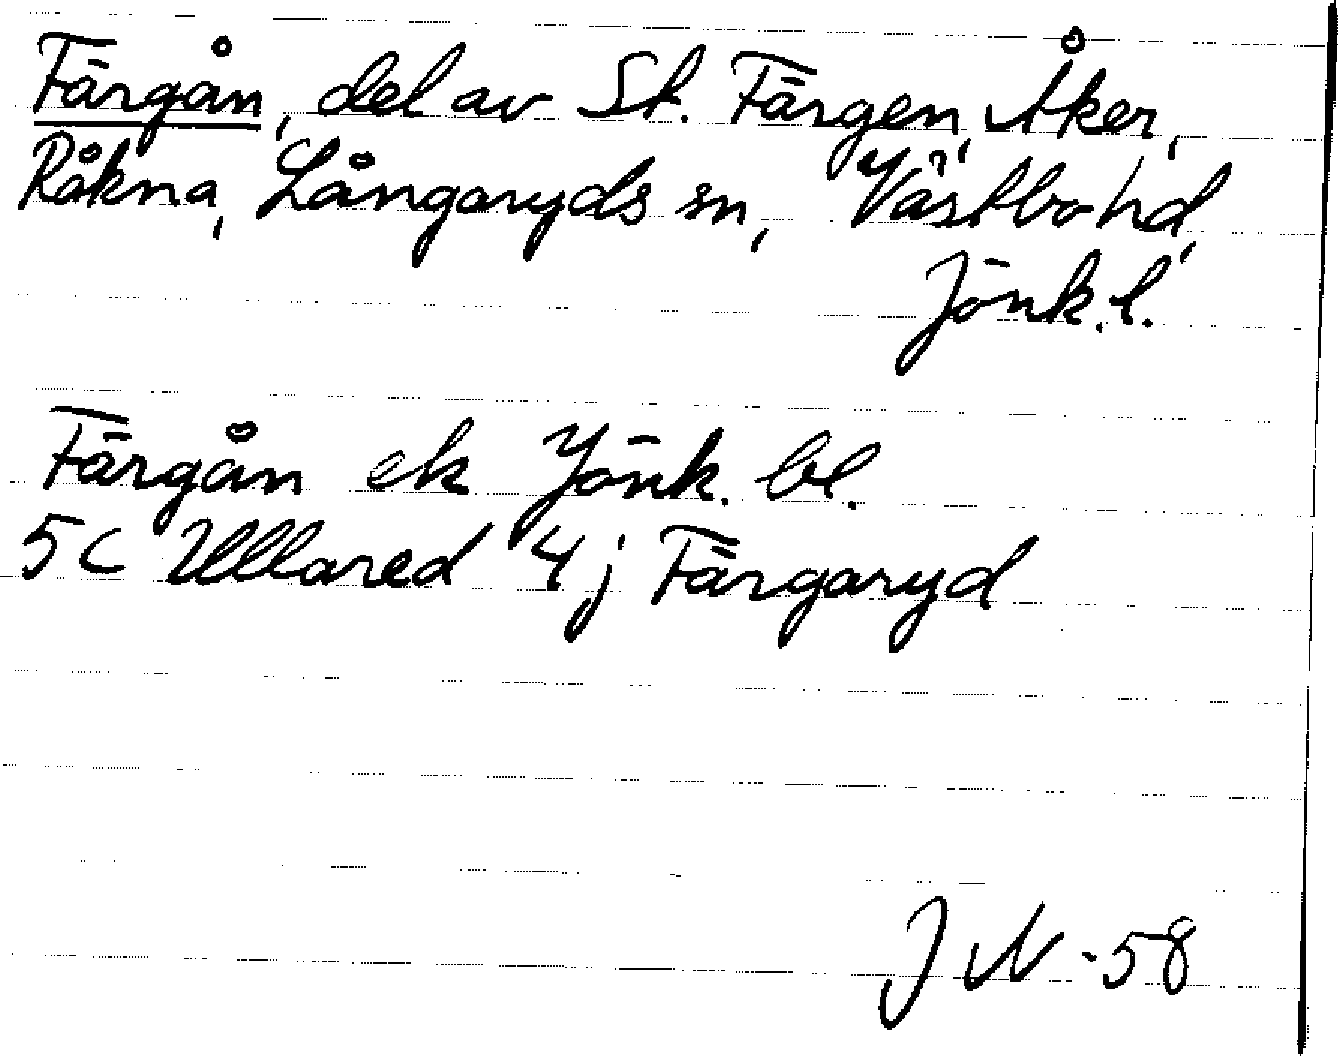 Färgån, del av St. Färgen, Åker,
Råkna, Långaryds sn, Västbo hd,
Jönk. l.
Färgån ek Jönk. bl.
5C Ullared 4j Färgaryd
JN -58